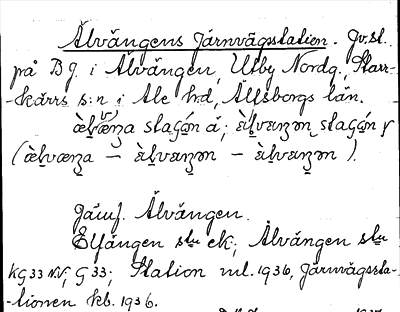 Älvängens Järnvägsstation. Jv.st.
på BJ. i Älvängen, Utby Nordg., Starr-
-kärrs s:n i Ale hd, Älfsborgs län.
(àlvæŋa – àlvæŋən – àlvæŋən).
Jämf. Älvängen.
Elfängen stn ek; Älvängen stn
KG33 NV, G33; Station ml. 1936, Järnvägssta-
-tionen kb. 1936.